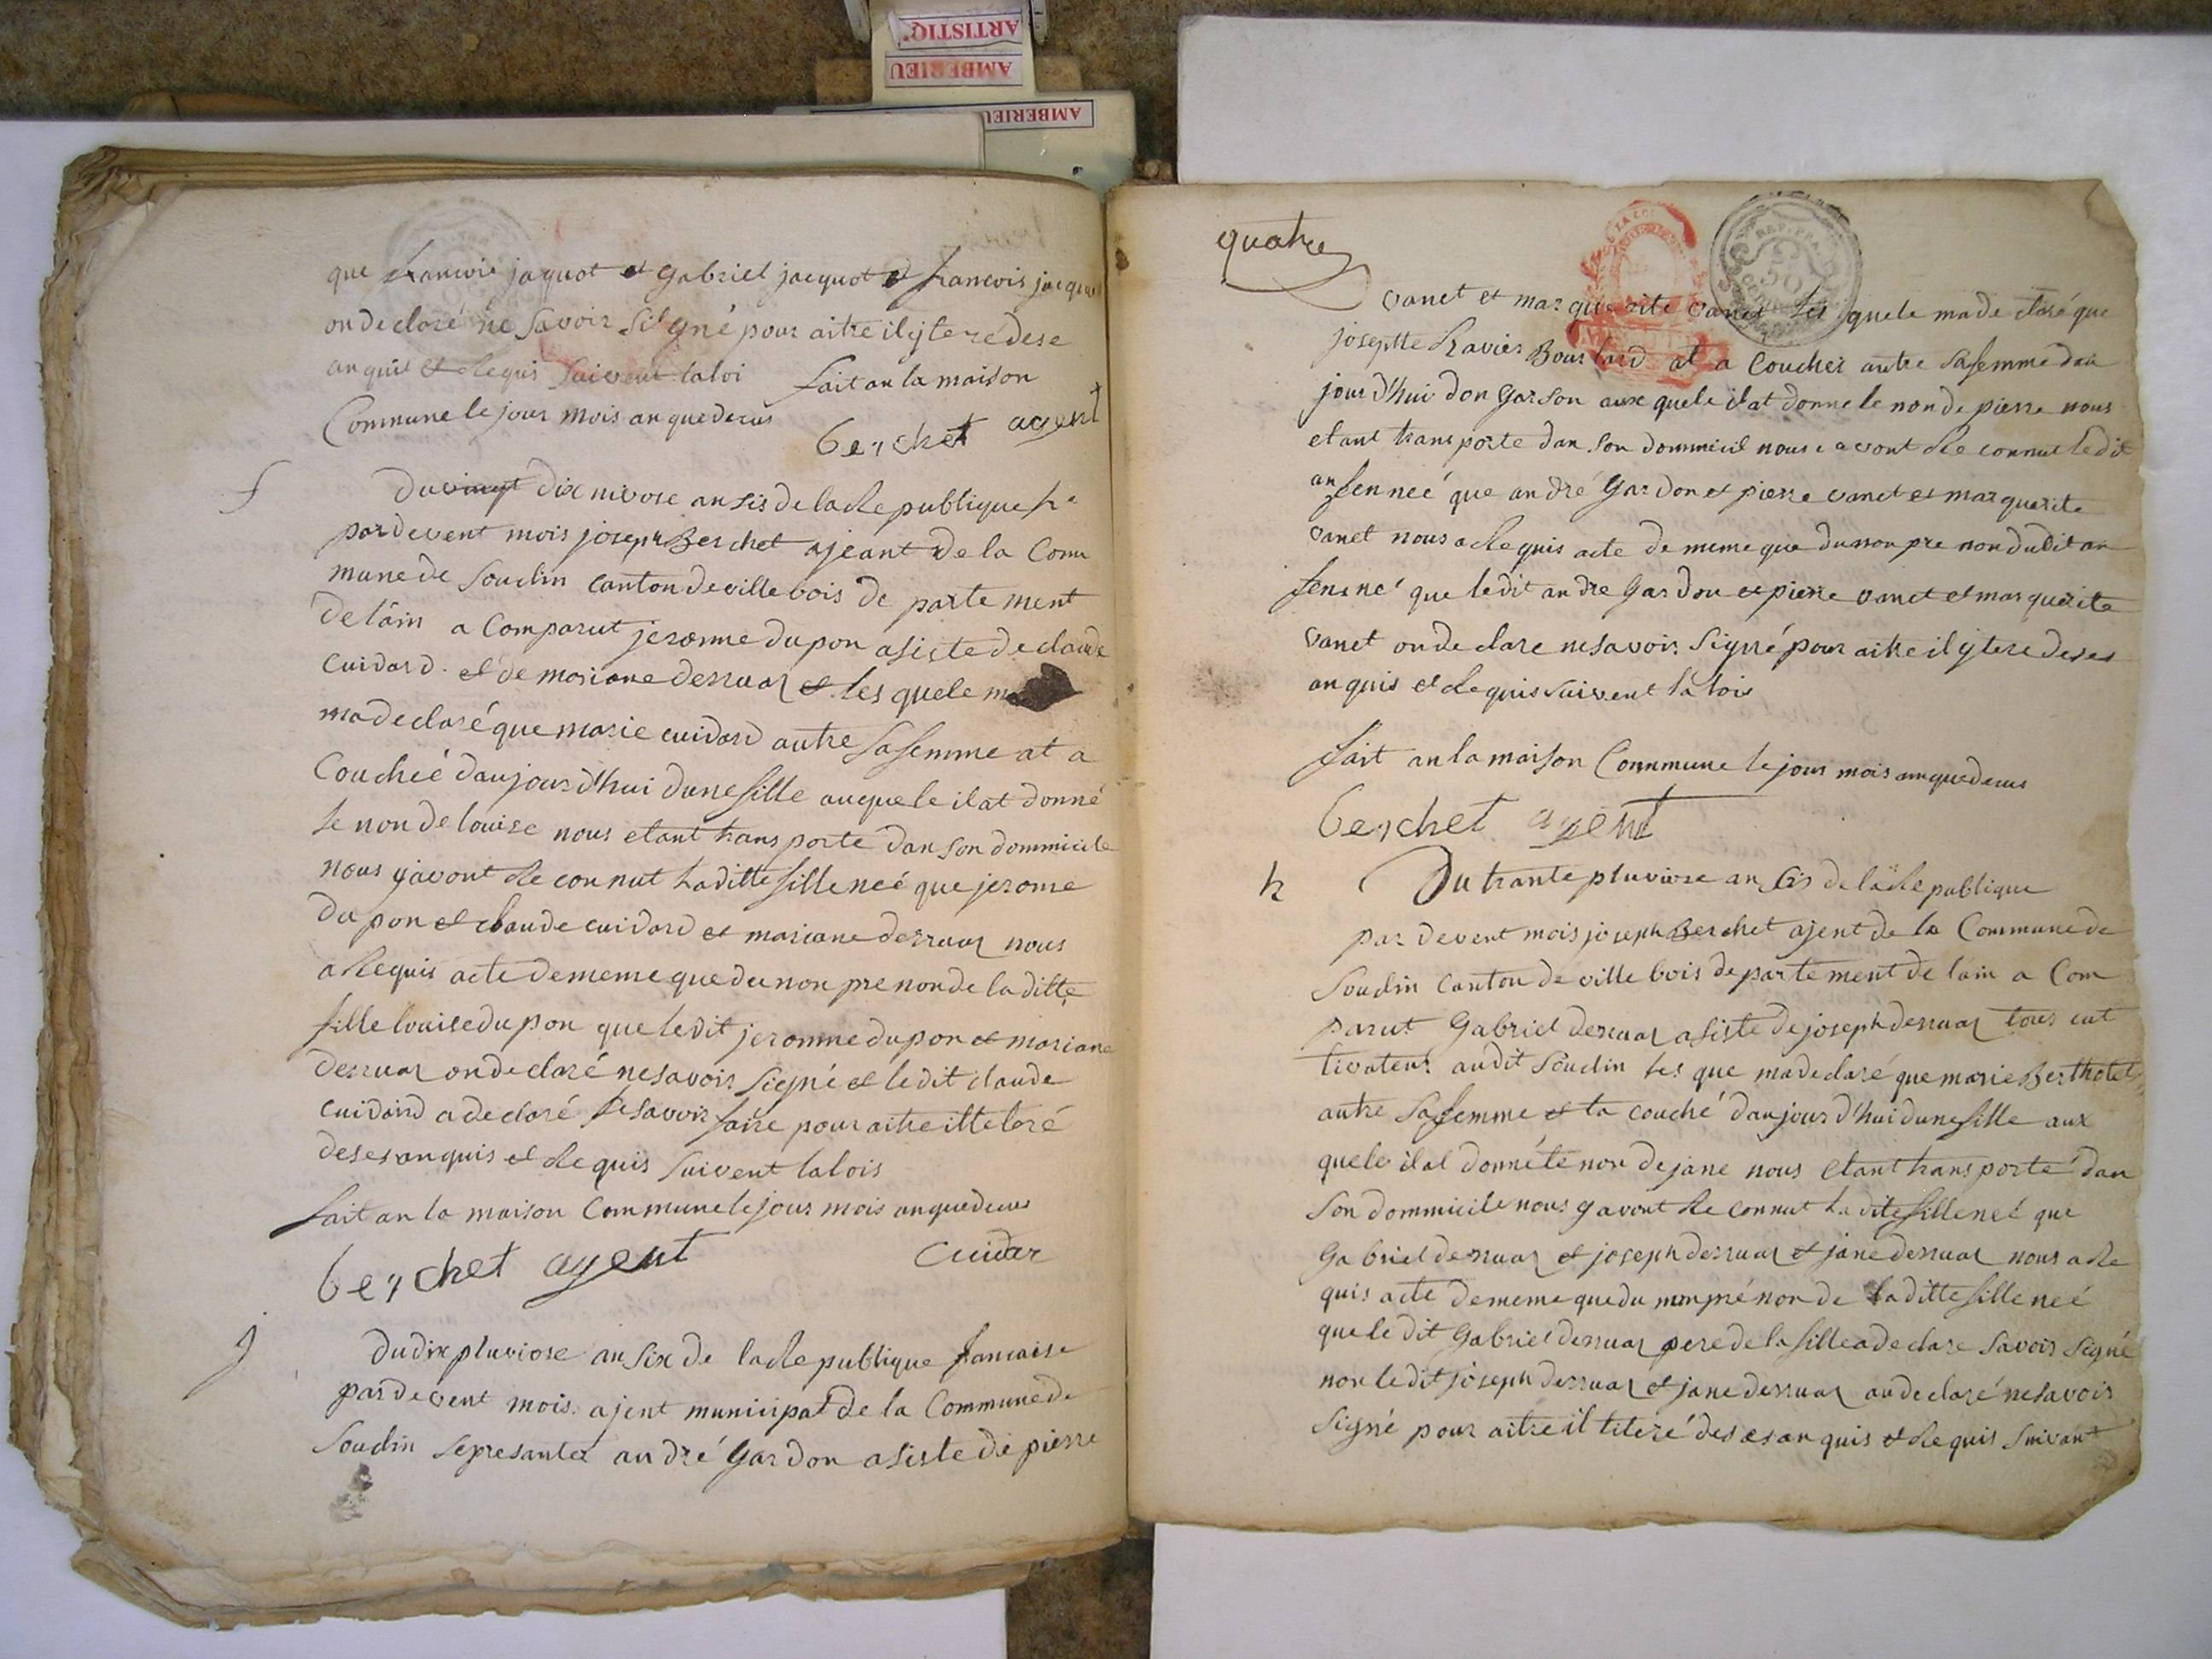 ARTISTIQ
AMBERIEU
AMBERIEU
que francois jaquot et Gabriel jacquot et francois jacquot
on declaré ne savoir signé pour aitre il ytere dese
anquis et Requis suivent la loi fait an la maison
Commune le jour mois an que desus
berchet agent
f
Du vingt dix nivose an sis de la Republique fr
par devent mois joseph Berchet ajeant de la Com
mune de Soudin canton de villebois de partement
de lain a Comparut jeromme dupon asiste de claude
cuidard et de mariane derruaz et les quele ma
ma declaré que marie cuidard autre sa femme at a
Couchéé daujourd'hui dune fille auquele il at donné
le non de louise nous etant transporte dan son dommicile
nous y avont Reconnut la ditte fille neé que jerome
dupon et claude cuidard et mariane derruaz nous
a Requis acte de meme que du non prenon de la ditte
fille louise dupon que le dit jeromme dupon et mariane
derruaz on declaré ne savoir signé et le dit claude
cuidard a declaré le savoir faire pour aitre itteleré
deses anquis et Requis suivent la lois
fait an la maison Commune le jour mois an que desus
berchet agent cuidar
g
Du dix pluviose an six de la Republique francaise
par devent mois ajent municipal de la Commune de
Soudin se presanter andré Gardon asiste de pierre
quatre
REP. FRA.
50
vanet et marguerite vanet les quele ma declaré que
josephte Ravier Bourlard at a Coucher autre sa femme dau
jourd'hui don Garson aux quele il at donne le non de pierre nous
etant transporte dan son dommicil nous i avont Reconnut le dit
anfenneé que andré Gardon et pierre vanet et marguerite
vanet nous a Requis acte de meme que du non prenon du dit an
fenne que le dit andre Gardon et pierre vanet et marguerite
vanet on declare ne savoir signé pour aitre il ytere deses
anquis et Requis suivent la lois
fait an la maison Commune le jour mois an que desus
berchet agent
h
Du trante pluviose an sis de la Republique
par devent mois joseph Berchet ajent de la Commune de
Soudin Canton de villebois departement de lain a Com
parut Gabriel derruaz asiste de joseph derruaz tous cul
tivateur audit Soudin les que ma declaré que marie Berthelet
autre sa femme et ta couché daujourd'hui dune fille aux
quele il at donné le non de jane nous etant transporté dan
son dommicile nous y avont Reconnut la dite fille neé que
Gabriel derruaz et joseph derruaz et jane derruaz nous a Re
quis acte de meme que du non pré non de la ditte fille neé
que le dit Gabriel derruaz pere de la fille a declare savoir signé
non le dit joseph derruaz et jane derruaz an declaré ne savoir
signé pour aitre il titeré des es anquis et Requis suivant